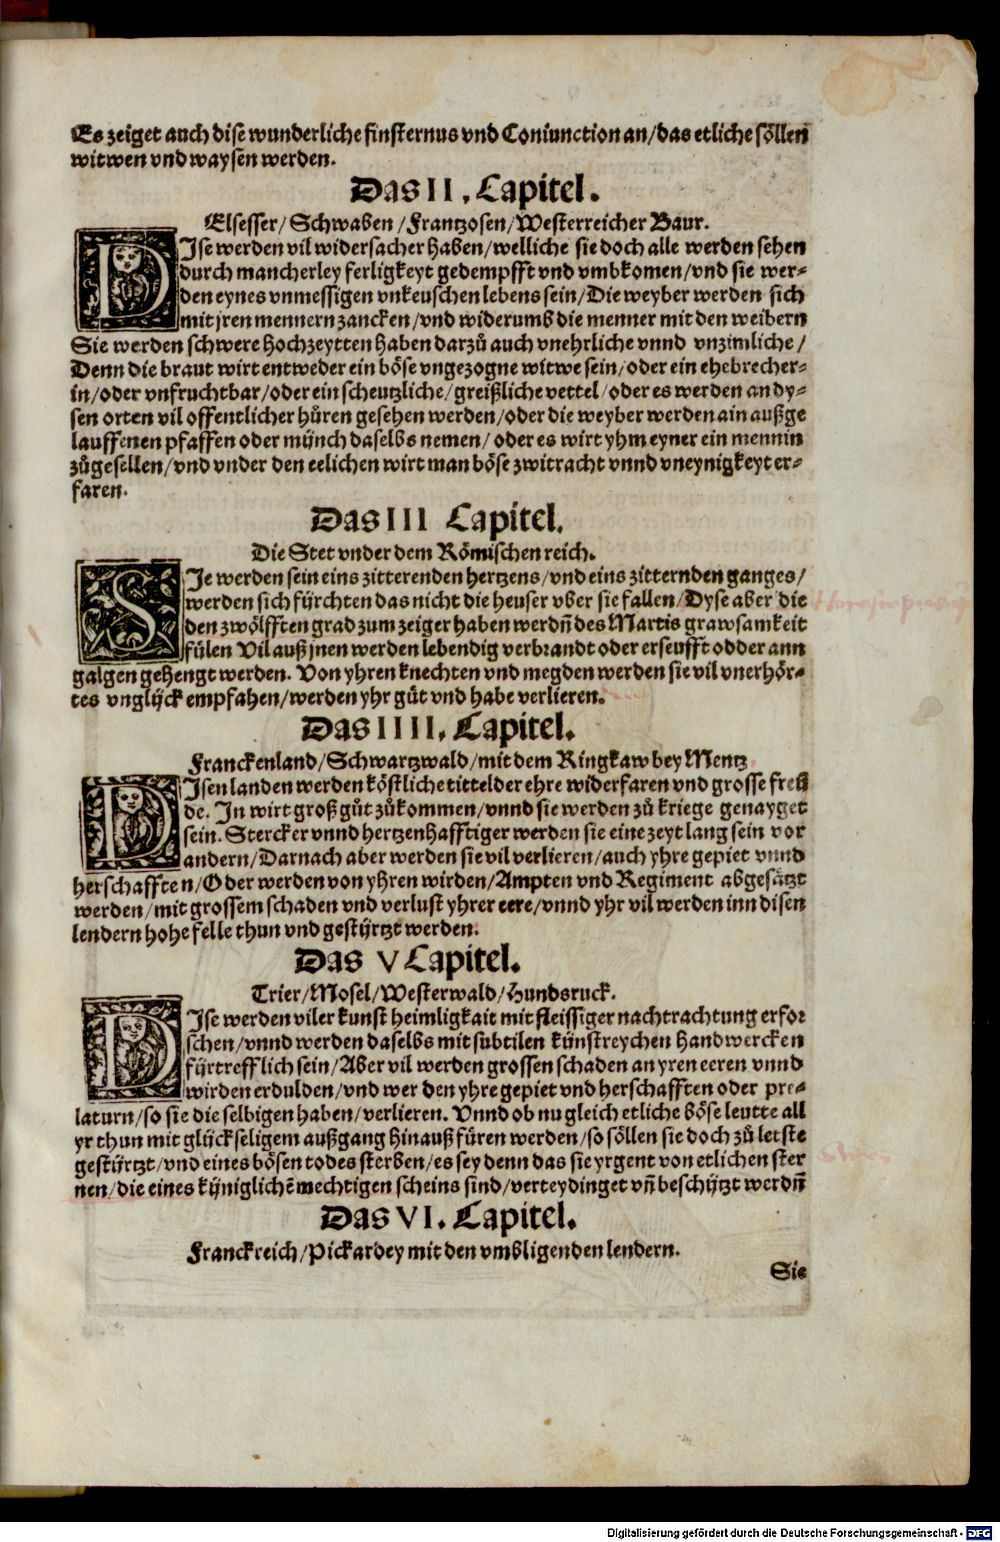 Es zeiget auch dise wunderliche finsternus vnd Coniunction an/das etliche söllen
witwen vnd waysen werden.
Das II. Capitel.
Elsesser/Schwaben/Frantzosen/Westerreicher Baur.
DIse werden vil widersacher haben/welliche sie doch alle werden sehen
durch mancherley ferligkeyt gedempfft vnd vmbkomen/vnd sie wer-
den eynes vnmessigen vnkeuschen lebens sein/Die weyber werden sich
mit jren mennern zancken/vnd widerumb die menner mit den weibern
Sie werden schwere hochzeytten haben darzů auch vnehrliche vnnd vnzimliche/
Denn die braut wirt entweder ein böse vngezogne witwe sein/oder ein ehebrecher-
in/oder vnfruchtbar/oder ein scheutzliche/greißliche vettel/oder es werden an dy-
sen orten vil offentlicher hůren gesehen werden/oder die weyber werden ain außge
lauffenen pfaffen oder mÿnch daselbs nemen/oder es wirt yhm eyner ein mennin
zůgesellen/vnd vnder den eelichen wirt man böse zwitracht vnnd vneynigkeyt er-
faren.
Das III Capitel.
Die Stet vnder dem Römischen reich.
SIe werden sein eins zitterenden hertzens/vnd eins zitternden ganges/
werden sich fÿrchten das nicht die heuser vber sie fallen/Dyse aber die
den zwölfften grad zum zeiger haben werdn̄ des Martis grawsamkeit
fülen Vil auß jnen werden lebendig verbrandt oder erseufft odder ann
galgen gehengt werden. Von yhren knechten vnd megden werden sie vil vnerhör-
tes vnglÿck empfahen/werden yhr gůt vnd habe verlieren.
Das IIII. Capitel.
Franckenland/Schwartzwald/mit dem Ringkaw bey Mentz
DIsen landen werden köstliche tittel der ehre widerfaren vnd grosse freü
de. In wirt groß gůt zůkommen/vnnd sie werden zů kriege genayget
sein. Stercker vnnd hertzenhafftiger werden sie eine zeyt lang sein vor
andern/Darnach aber werden sie vil verlieren/auch yhre gepiet vnnd
herschafften/Oder werden von yhren wirden/Ampten vnd Regiment abgesätzt
werden/mit grossem schaden vnd verlust yhrer eere/vnnd yhr vil werden inn disen
lendern hohe felle thun vnd gestÿrtzt werden.
Das V Capitel.
Trier/Mosel/Westerwald/Hundsruck.
DIse werden viler kunst heimligkait mit fleissiger nachtrachtung erfor
schen/vnnd werden daselbs mit subtilen kÿnstreychen handwercken
fÿrtrefflich sein/Aber vil werden grossen schaden an yren eeren vnnd
wirden erdulden/vnd wer den yhre gepiet vnd herschafften oder pre-
laturn/so sie die selbigen haben/verlieren. Vnnd ob nu gleich etliche böse leutte all
yr thun mit glÿckseligem außgang hinauß füren werden/so söllen sie doch zů letste
gestÿrtzt/vnd eines bösen todes sterben/es sey denn das sie yrgent von etlichen ster
nen/die eines kÿniglichē mechtigen scheins sind/verteydinget vn̄ beschÿtzt werdn̄
Das VI. Capitel.
Franckreich/Pickardey mit den vmbligenden lendern.
Sie
Digitalisierung gefördert durch die Deutsche Forschungsgemeinschaft - DFG